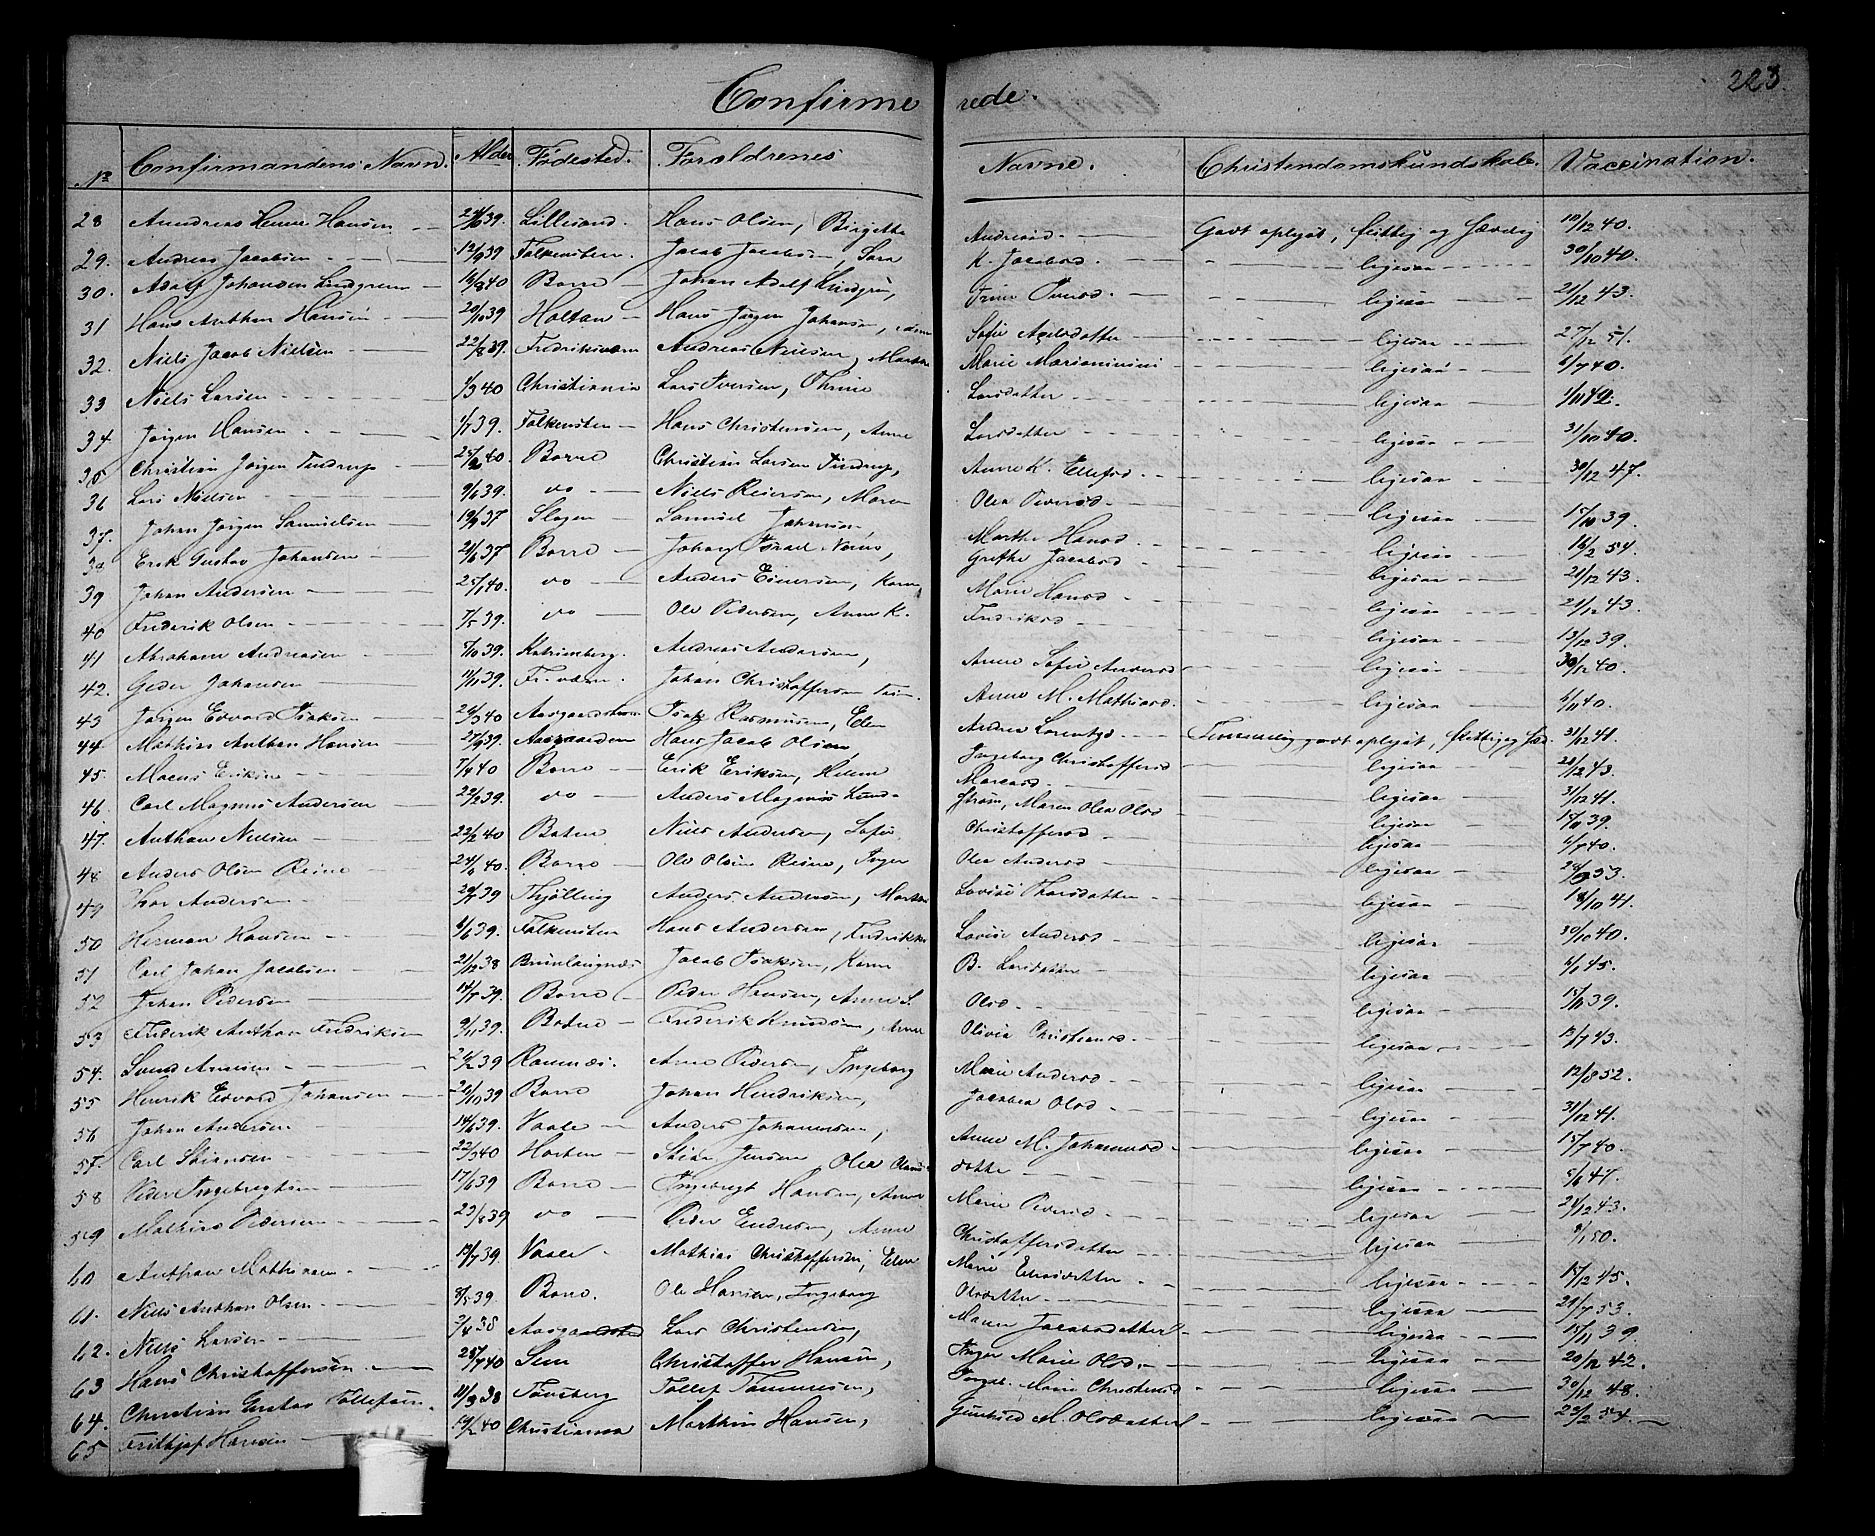 Confirmerede.
223.
No Confirmandens Navn. Alder Fødested. Forældrenes Navne. Christendomskundskab. Vaccination.
28 Hansen 39. Lillesand. Hans Olsen, Birgitte Andreasd. Godt oplyst, flittig og sædelig 10/12 40.
29. Andreas Jacobsen 12/9 39 Falkensten. Jacob Jacobsen, Sara K. Jacobsd. ligesaa 30/10 40.
30. Adolf Johansen Lindgreen 16/8 40 Borre Johan Adolf Lindgren, Trine Iversd. ligesaa 21/12 43.
31 Hans Anthon Hansen 20/10 39 Holtan Hans Jørgen Johansen, Sofie Axelsdatter ligesaa 27/2 51.
32. Niels Jacob Nielsen 22/8 39. Fredriksværn Andreas Nielsen, Marthe Marie ligesaa 6/7 40.
33 Niels Larsen 1/3 40 Christiania Lars Iversen, Thrine Larsdatter ligesaa
34. Jørgen Hansen 1/7 39. Falkensten Hans Christensen, Anne Larsdatter ligesaa 31/10 40.
35 Christian Jørgen Tindrup 40. Borre Christian Larsen Tindrup, Anne K. Ellefsd. ligesaa 30/12 47.
36 Lars Nielsen 9/6 39. do Niels Reiersen, Maren Olea Iversd. ligesaa 15/10 39.
37. Johan Jørgen Samuelsen 19/9 37 Slagen Samuel Johansen Marthe Hansd. ligesaa 16/2 54.
38 Erik Gustav Johansen 21/6 37 Borre Johan Israel Grethe Jacobsd. ligesaa 21/12 43.
39 Johan Andersen 25/1 40. do Anders Einersen, Karen Marie Hansd. ligesaa 21/12 43.
40 Frederik Olsen 7/5 39. do Ole Pedersen, Anne K. Fredriksd. ligesaa 13/12 39.
41 Abraham Andreasen 7/10 39. Andreas Andersen, Anne Sofie Andersd. ligesaa 30/12 40.
42. Johansen 11/11 39. Fr.værn. Johan Christoffersen Anne M. Mathisd. ligesaa 6/11 40.
43 Jørgen Edvard Isaksen 24/3 40 Aasgaardstrand Isak Rasmussen, Elen Andrea Lorentzd. Temmelig godt oplyst, flittig og sæd. 31/12 41.
44. Mathias Anthon Hansen 27/9 39. Aasgaarden Hans Jacob Olsen, Ingeborg Christoffersd. ligesaa 43.
45. Moens Eriksen 7/4 40 Borre Erik Eriksen, Helene ligesaa 31/12 41.
46. Carl Magnus Andersen 22/2 39. do Anders Magnus Lundstrøm, Maren Olea Olsd ligesaa 39.
47. Anthon Nielsen 22/2 40 Botne Niels Andersen, Sofie Christoffersd. ligesaa 40.
48 Anders Olsen Reine 24/6 40. Borre Ole Olsen Reine, Inger Olea Andersd ligesaa 53.
49 Thor Andersen 39 Thjølling Anders Andersen, Marthe Lovise Thorsdatter ligesaa 18/10 41.
50 Herman Hansen 4/6 39. Falkensten Hans Andersen, Fredrikke Lovise Andersd ligesaa 30/10 40.
51 Carl Johan Jacobsen 21/12 38 Brunlaugnæs Jacob Isaksen, Karen B. Larsdatter ligesaa 6/1 45.
52 Johan Pedersen 14/7 39. Borre Peder Hansen, Anne S. Olsd ligesaa 15/11 39.
53 Frederik Anthon Fredriksen 9/11 39. Botne Frederik Knudsen, Anne Olivia Christiansd. ligesaa 13/7 43.
54. Svend Arnesen 24/2 39 Ramnæs. Arne Pedersen, Ingeborg Marie Andersd ligesaa 12/8 52.
55 Henrik Edvard Johansen 26/10 39 Borre Johan Hendriksen, Jacobea Olsd. ligesaa 31/12 41.
56 Johan Andersen 14/6 39. Vaale Anders Johannesen, Anne M. Johannesd ligesaa 15/7 40.
57. Carl Stiansen 22/3 40 Horten Stian Jensen Olea datter ligesaa 5/6 47.
58 Peder Ingebregtsen 17/6 39 Borre Ingebregt Hansen, Anne Marie Iversd. ligesaa 24/12 43.
59 Mathias Pedersen 23/8 39 do Peder Endresen, Anne Christoffersdatter ligesaa 8/1 50.
60. Anthon Mathisen 19/7 39 Vaale. Mathias Christoffersen, Elen Marie ligesaa 15/12 45.
61. Niels Anthon Olsen 8/5 39. Borre. Ole Hansen, Ingeborg Olsdatter ligesaa 21/7 53.
62. Niels Larsen 2/4 38 Lars Christensen, Maren Jacobsdatter ligesaa 15/11 39
63 Hans Christoffersen 25/7 40 Sem Christoffer Hansen, Inger Marie Olsd. ligesaa 20/12 42.
64. Christian Gustav Tollefsen 11/3 38 Tønsberg Tollef Tønnesen, Ingeb. Marie Christensd ligesaa 30/12 48.
65 Frithjof Hansen 19/2 40 Christiania Marthin Hansen, Gunhild M. Olsdatter ligesaa 23/2 54.